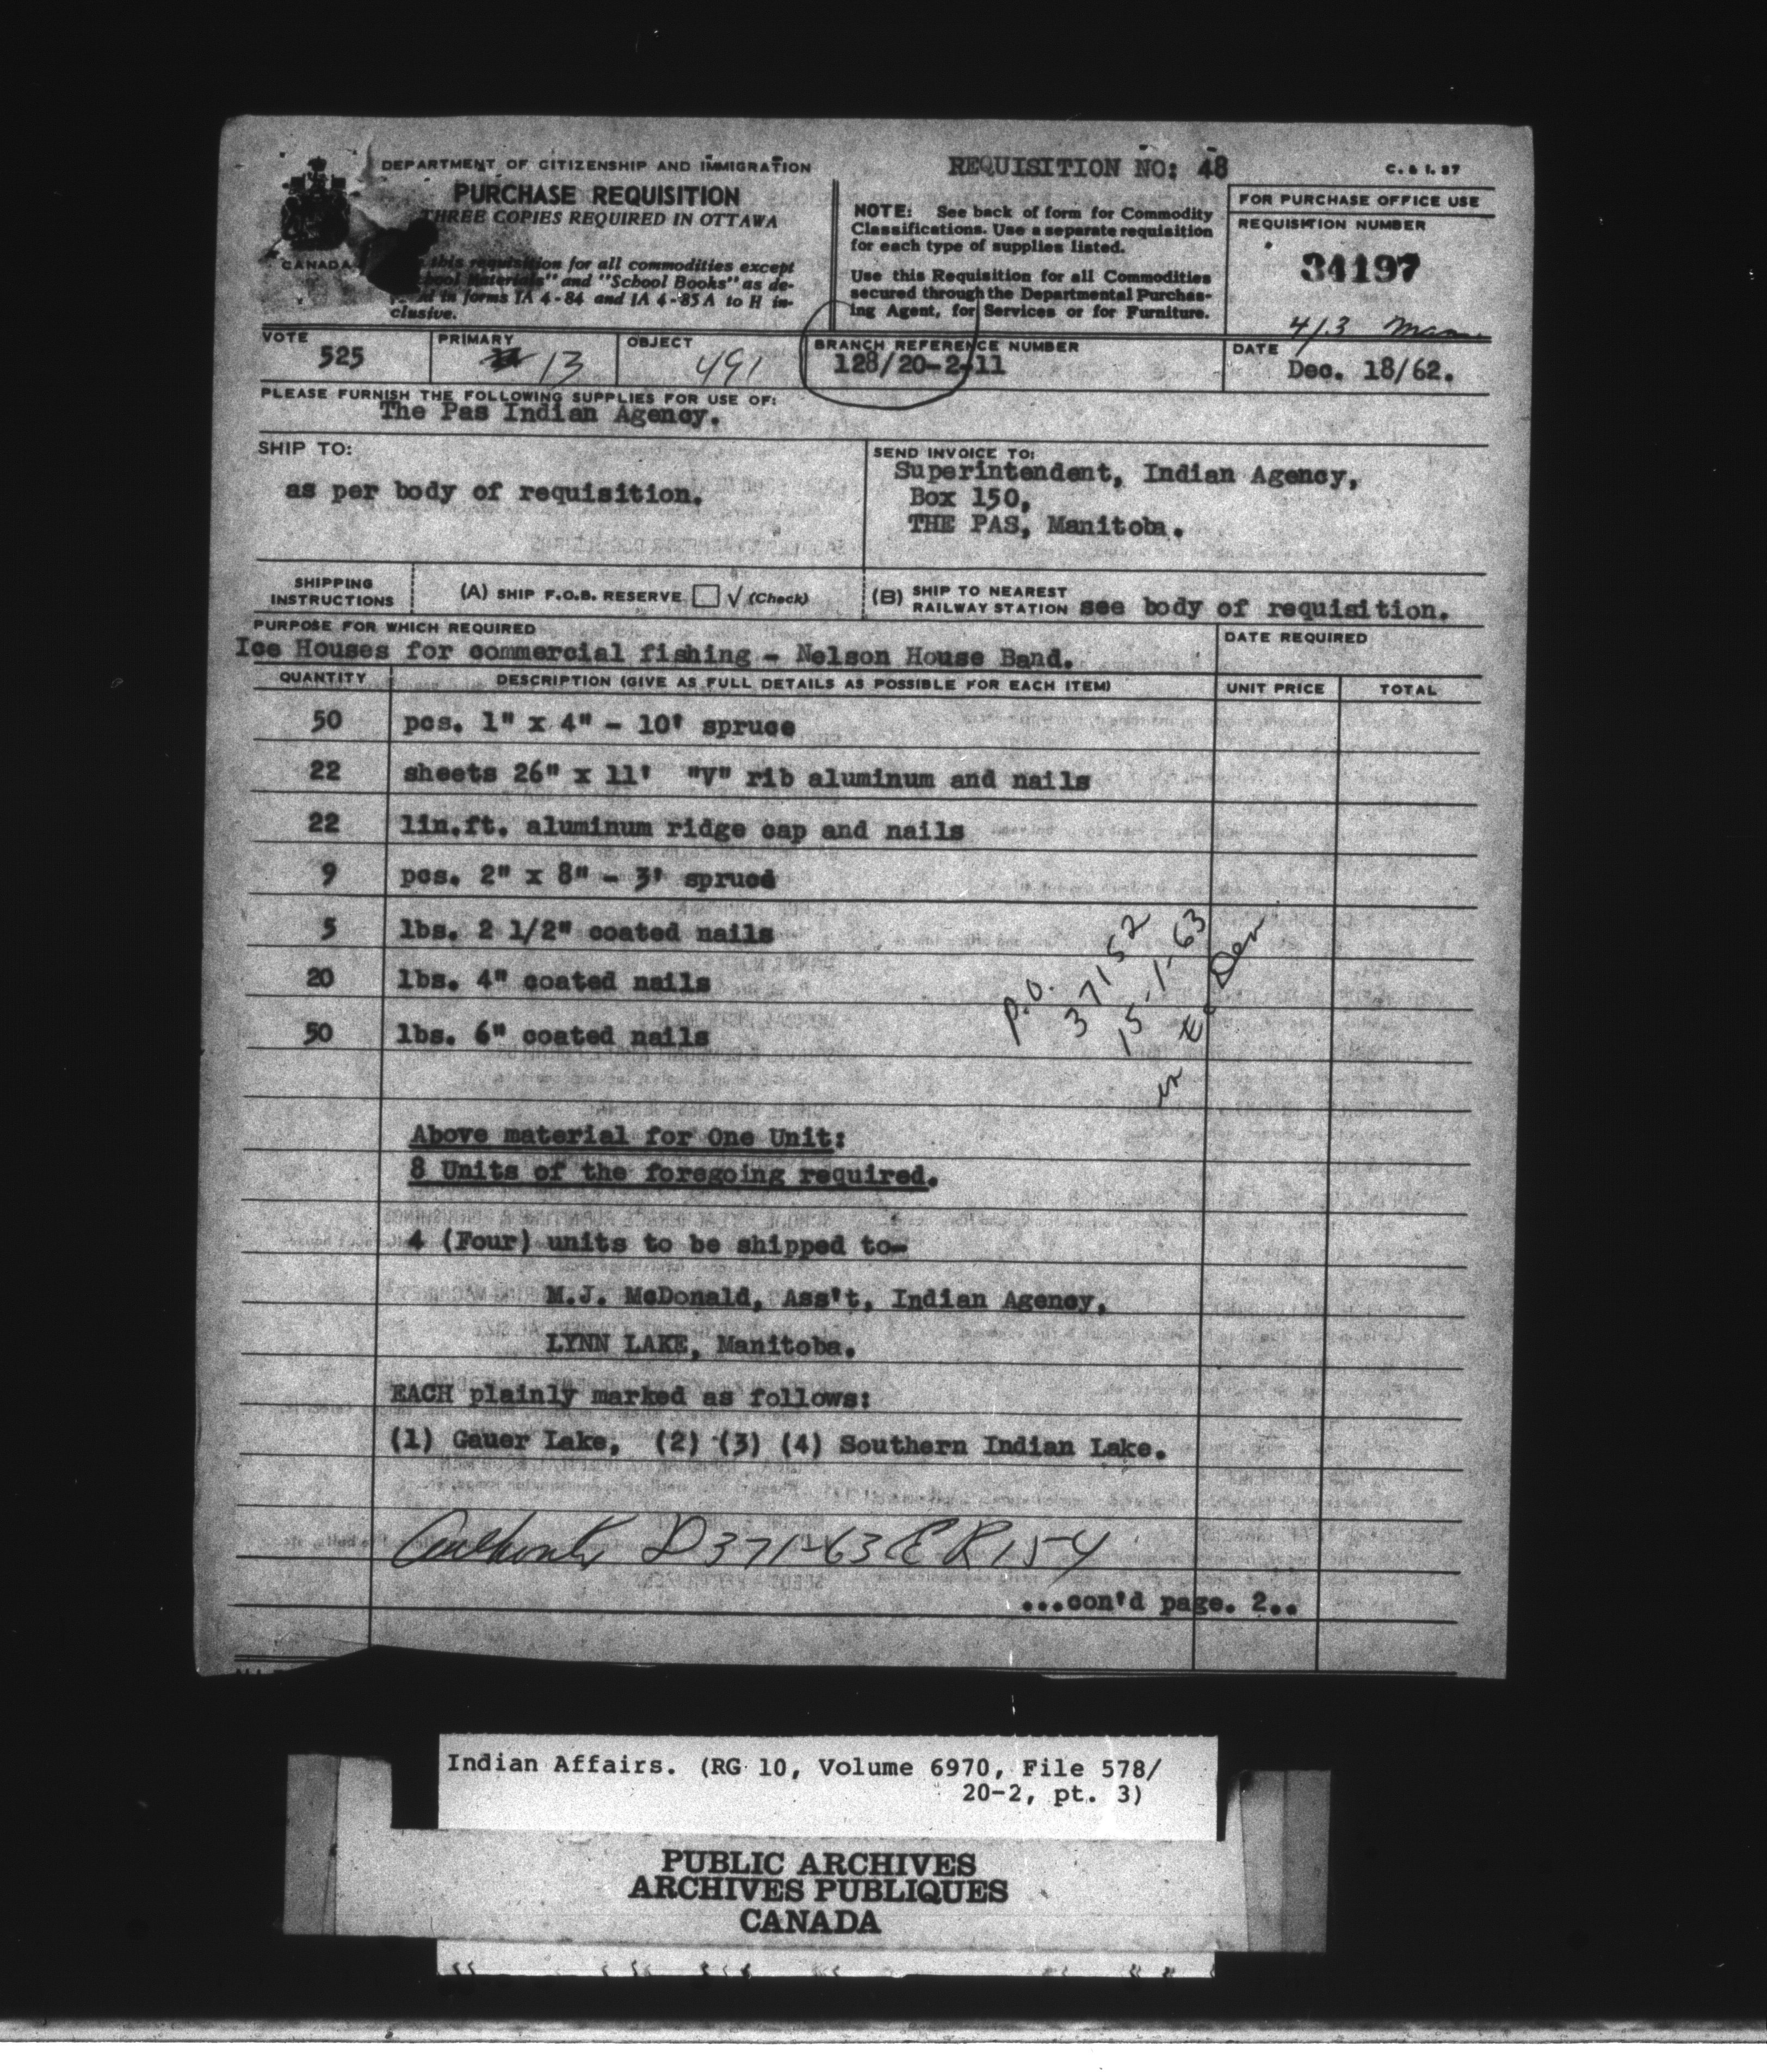 DEPARTMENT OF CITIZENSHIP AND IMMIGRATION
PURCHASE REQUISITION
THREE COPIES REQUIRED IN OTTAWA
CANADA
this requisition for all commodities except
"School Materials" and "School Books" as de-
in forms IA 4-84 and IA 4-85A to H in-
clusive.
REQUISITION NO: 48
C. & I. 87
NOTE: See back of form for Commodity
Classifications. Use a separate requisition
for each type of supplies listed.
Use this Requisition for all Commodities
secured through the Departmental Purchas-
ing Agent, for Services or for Furniture.
FOR PURCHASE OFFICE USE
REQUISITION NUMBER
34197
413
VOTE
525
PRIMARY
13
OBJECT
491
BRANCH REFERENCE NUMBER
128/20-2-11
DATE
Dec. 18/62.
PLEASE FURNISH THE FOLLOWING SUPPLIES FOR USE OF:
The Pas Indian Agency.
SHIP TO:
as per body of requisition.
SEND INVOICE TO:
Superintendent, Indian Agency,
Box 150,
THE PAS, Manitoba.
SHIPPING
INSTRUCTIONS
(A) SHIP F.O.B. RESERVE √ (Check)
(B) SHIP TO NEAREST
RAILWAY STATION see body of requisition.
PURPOSE FOR WHICH REQUIRED
Ice Houses for commercial fishing - Nelson House Band.
DATE REQUIRED
QUANTITY DESCRIPTION (GIVE AS FULL DETAILS AS POSSIBLE FOR EACH ITEM) UNIT PRICE TOTAL
50 pcs. 1" x 4" - 10' spruce
22 sheets 26" x 11' "V" rib aluminum and nails
22 lin.ft. aluminum ridge cap and nails
9 pcs. 2" x 8" - 3' spruce
5 lbs. 2 1/2" coated nails
20 lbs. 4" coated nails
50 lbs. 6" coated nails
P.O.
37152
15-1-63
Above material for One Unit:
8 Units of the foregoing required.
4 (Four) units to be shipped to-
M.J. McDonald, Ass't, Indian Agency,
LYNN LAKE, Manitoba.
EACH plainly marked as follows:
(1) Gauer Lake, (2) (3) (4) Southern Indian Lake.
Authority D371-63 ER154
...con'd page. 2..
Indian Affairs. (RG 10, Volume 6970, File 578/
20-2, pt. 3)
PUBLIC ARCHIVES
ARCHIVES PUBLIQUES
CANADA